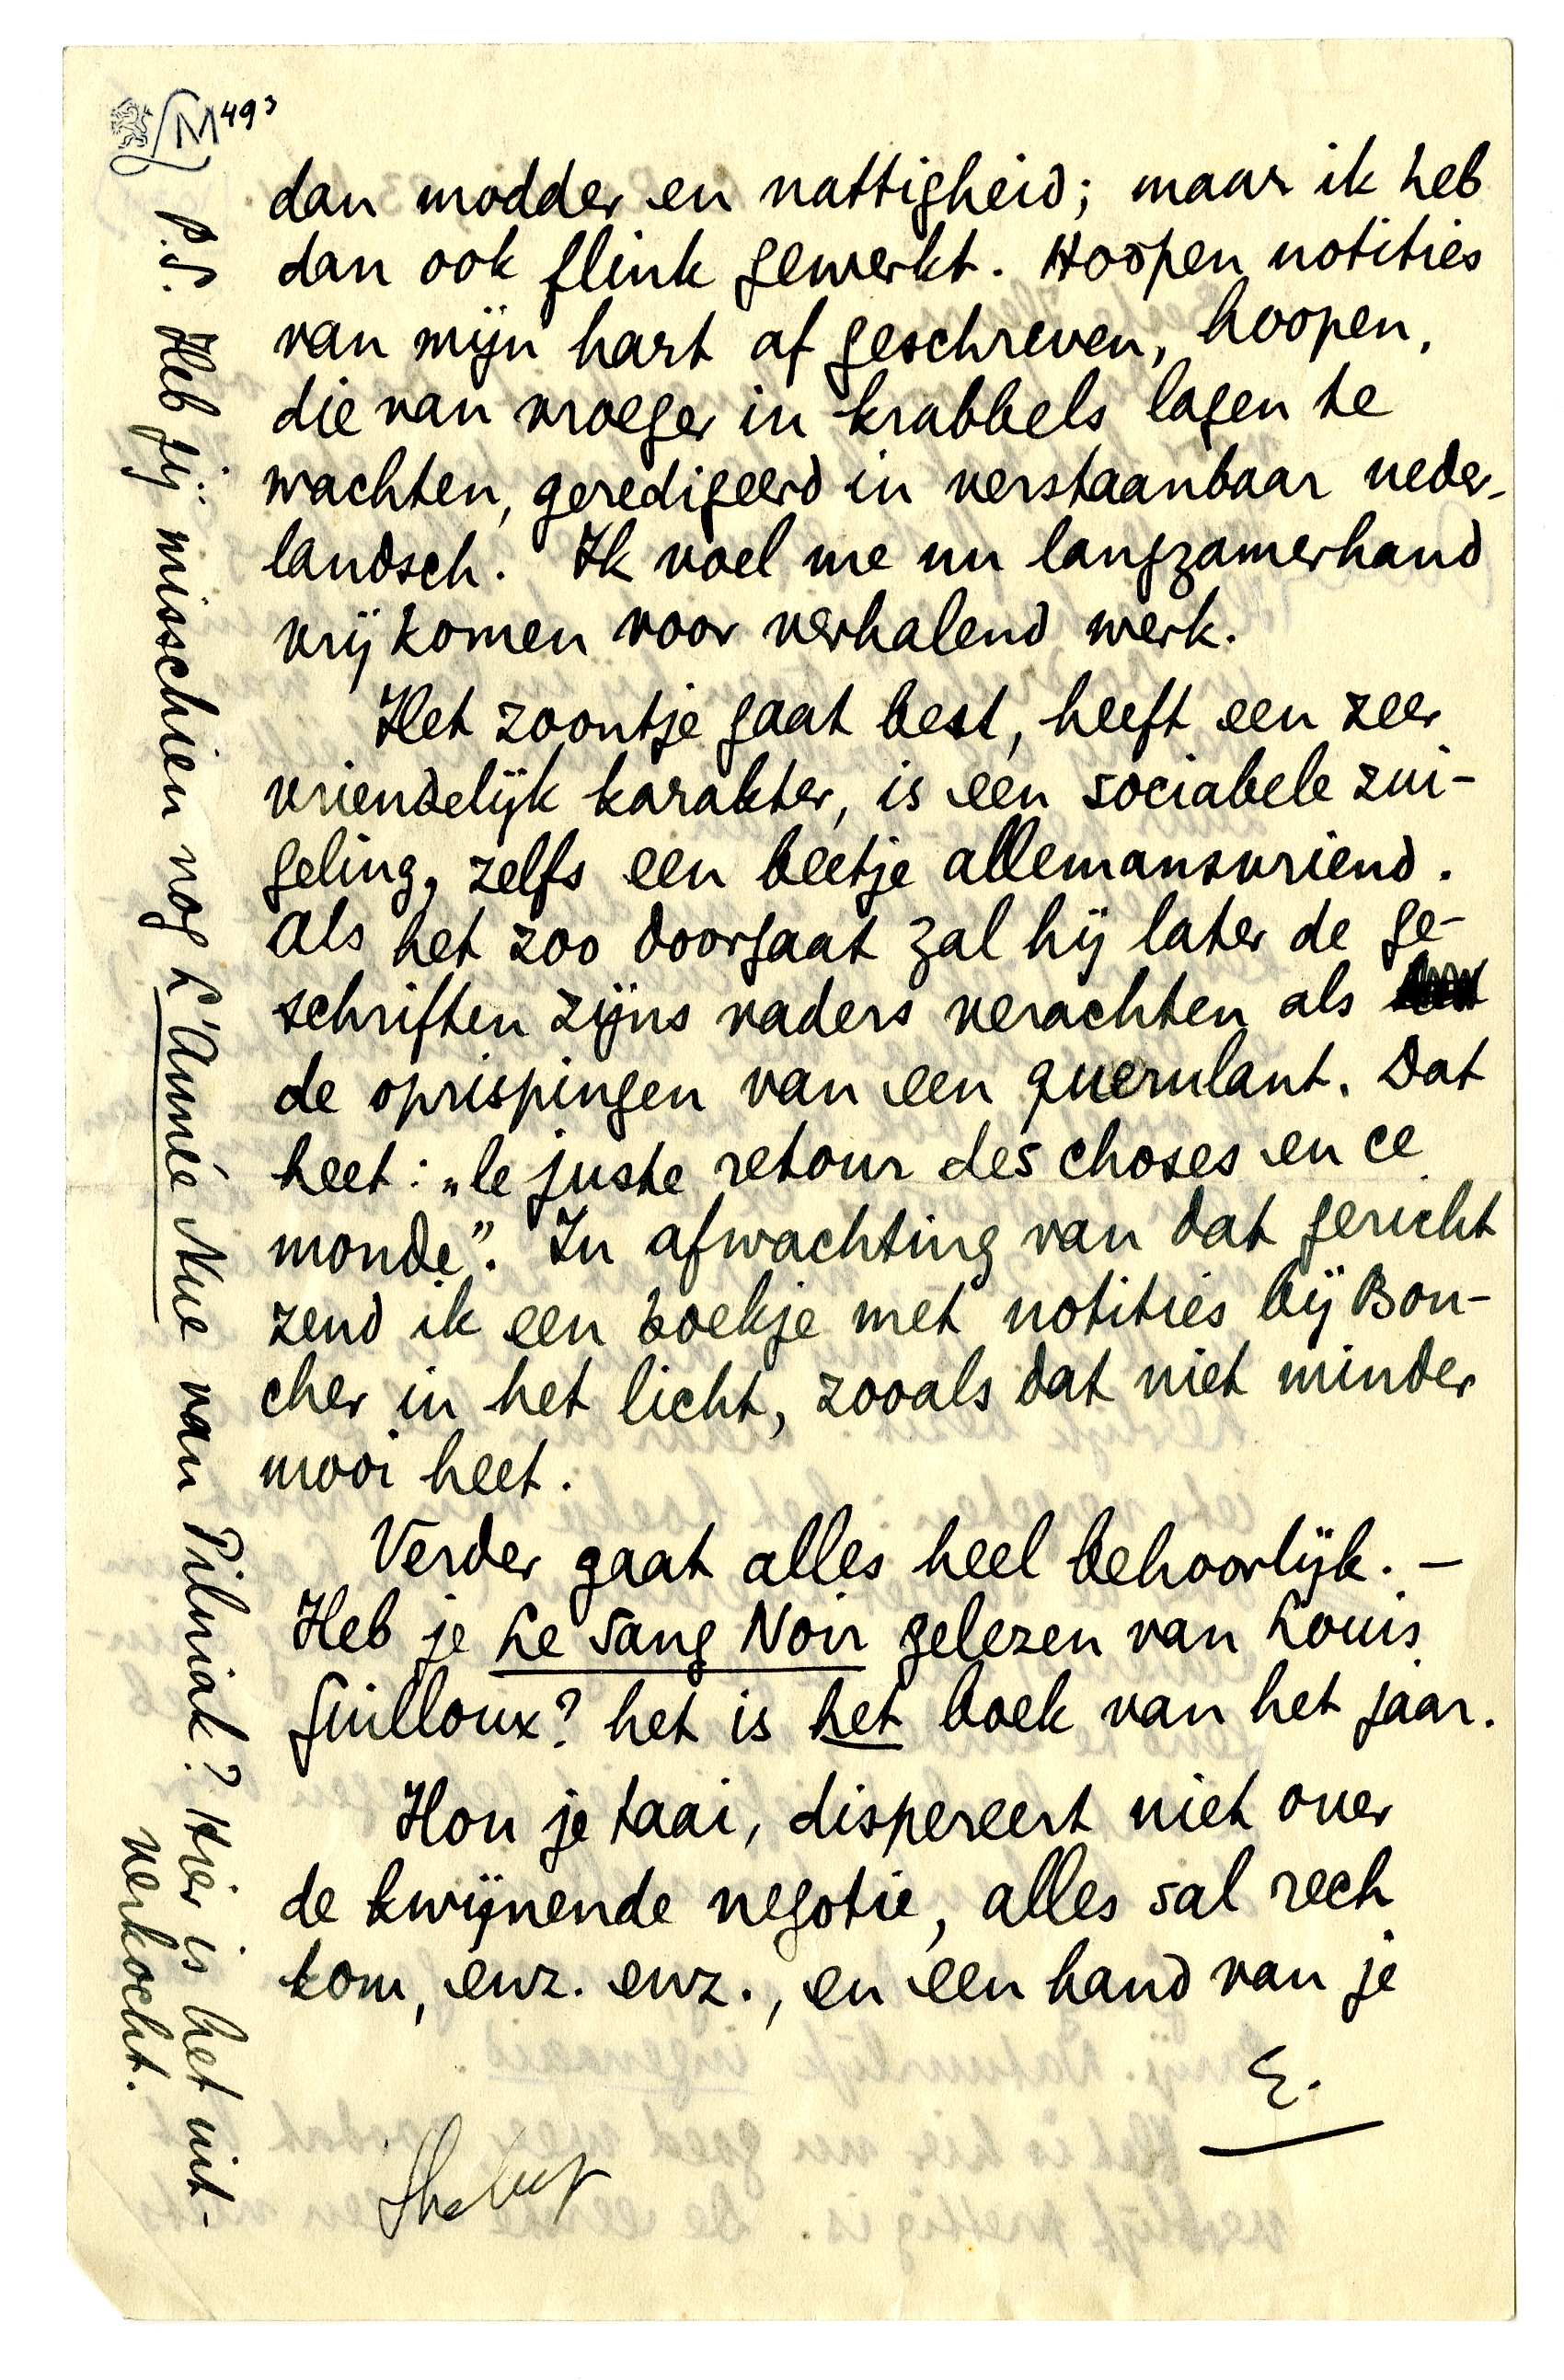 LM 493
dan modder en nattigheid; maar ik heb
dan ook flink gewerkt. Hoopen notities
van mijn hart af geschreven, hoopen,
die van vroeger in krabbels lagen te
wachten, geredigeerd in verstaanbaar neder-
landsch. Ik voel me nu langzamerhand
vrij komen voor verhalend werk.
Het zoontje gaat best, heeft een zeer
vriendelijk karakter, is een sociabele zui-
geling, zelfs een beetje allemansvriend.
Als het zoo doorgaat zal hij later de ge-
schriften zijns vaders verachten als
de oprispingen van een querulant. Dat
heet: „le juste retour des choses en ce
monde”. In afwachting van dat gericht
zend ik een boekje met notities bij Bou-
cher in het licht, zooals dat niet minder
mooi heet.
Verder gaat alles heel behoorlijk. –
Heb je Le Sang Noir gelezen van Louis
Guilloux? het is het boek van het jaar.
Hou je taai, dispereert niet over
de kwijnende negotie, alles sal rech
kom, enz. enz., en een hand van je
E.
P.S. Heb jij misschien nog L'Année Nue van Pilniak? Hier is het uit-
verkocht.